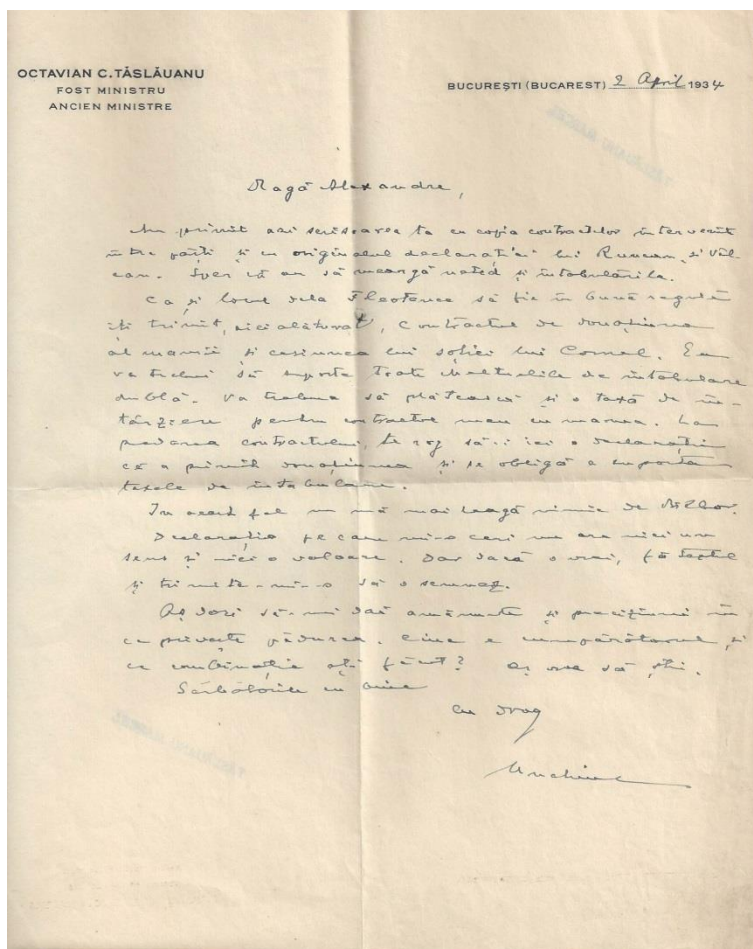 OCTAVIAN C. TĂSLĂUANU
FOST MINISTRU
ANCIEN MINISTRE
BUCUREȘTI (BUCAREST) 2 April 1934
TĂSLĂUANU MARCEL
Dragă Alexandre,
Am primit azi scrisoarea ta cu copia contractelor intervenite
între părți și cu originalul declarației lui Runcan și Vâl-
can. Sper că au să meargă și întabulările.
Ca și locul dela să fie în bună regulă
îți trimit, aici alăturat, contractul de donațiune
al mamii și cesiunea lui soției lui Cornel. Ea
va trebui să suporte toate cheltuelile de întabulare
dublă. Va trebui să plătească și o taxă de în-
târziere pentru contractul meu cu mama. La
predarea contractului, te rog să-i iei o declarație
că a primit donațiunea și se obligă a suporta
taxele de întabulare.
În acest fel nu mă mai leagă nimic de Bilbor.
Declarația pe care mi-o ceri nu are nici un
sens și nici o valoare. Dar dacă o vrei, fă textul
și trimite-mi-o să o semnez.
Aș dori să-mi dai amănunte și preciziuni în
ce privește pădurea. Cine e cumpărătorul și
ce combinație ați făcut? Aș vrea să știu.
Sărbătorile cu bine
cu drag
Unchiul
TĂSLĂUANU MARCEL